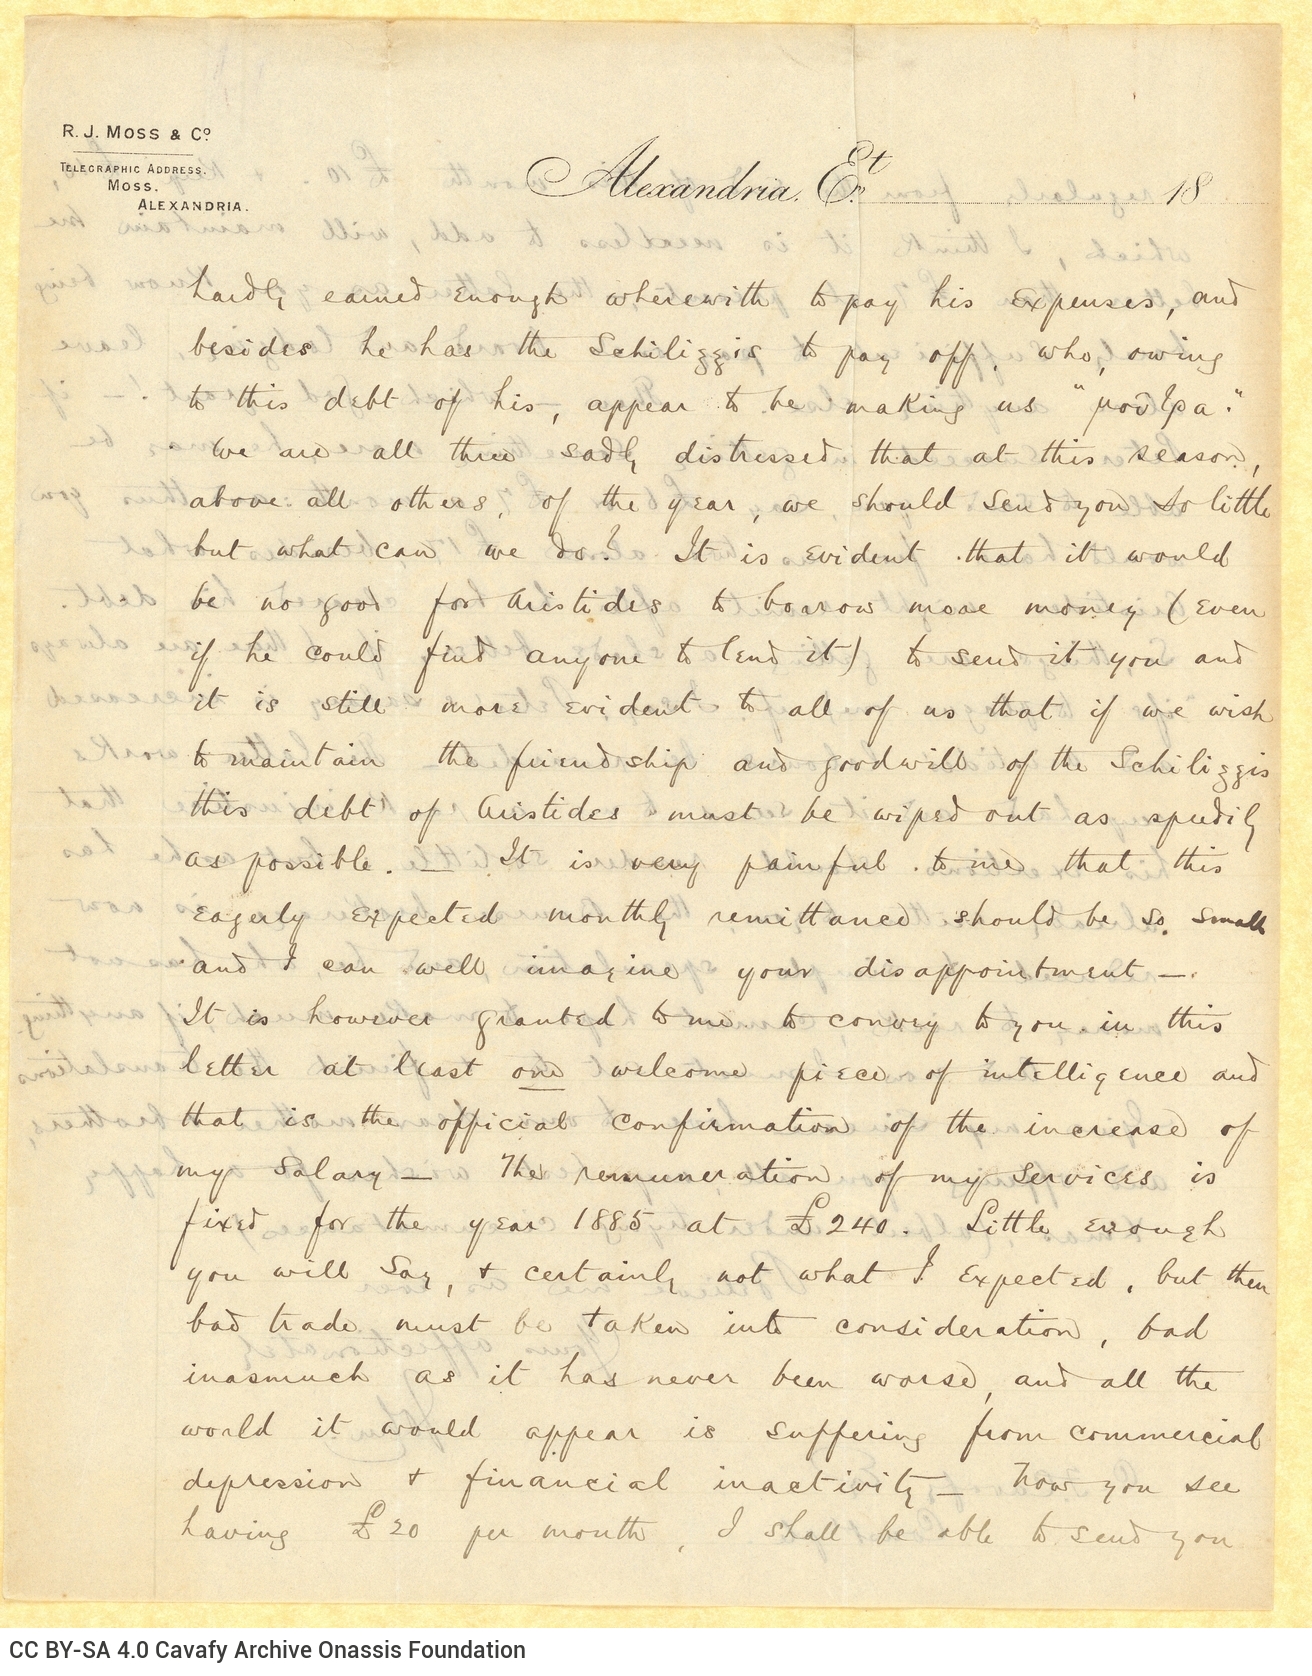 R. J. MOSS & Cº
TELEGRAPHIC ADDRESS.
MOSS.
ALEXANDRIA.
Alexandria. Et. 18
hardly earned enough wherewith to pay his expenses, and
besides he has the Schilizzis to pay off, who, owing
to this debt of his, appear to be making us "μοῦτρα."
We are all three sadly distressed that at this season,
above all others, of the year, we should send you so little
but what can we do? It is evident that it would
be no good for Aristides to borrow more money (even
if he could find anyone to lend it) to send it you and
it is still more evident to all of us that if we wish
to maintain the friendship and goodwill of the Schilizzis
this debt of Aristides must be wiped out as speedily
as possible. — It is very painful to me that this
eagerly expected monthly remittance should be so small
and I can well imagine your disappointment —.
It is however granted to me to convey to you in this
letter at least one welcome piece of intelligence and
that is the official confirmation of the increase of
my salary — The remuneration of my services is
fixed for the year 1885 at £240. Little enough
you will say, & certainly not what I expected, but then
bad trade must be taken into consideration, bad
inasmuch as it has never been worse, and all the
world it would appear is suffering from commercial
depression & financial inactivity — Now you see
having £20 per month, I shall be able to send you
CC BY-SA 4.0 Cavafy Archive Onassis Foundation